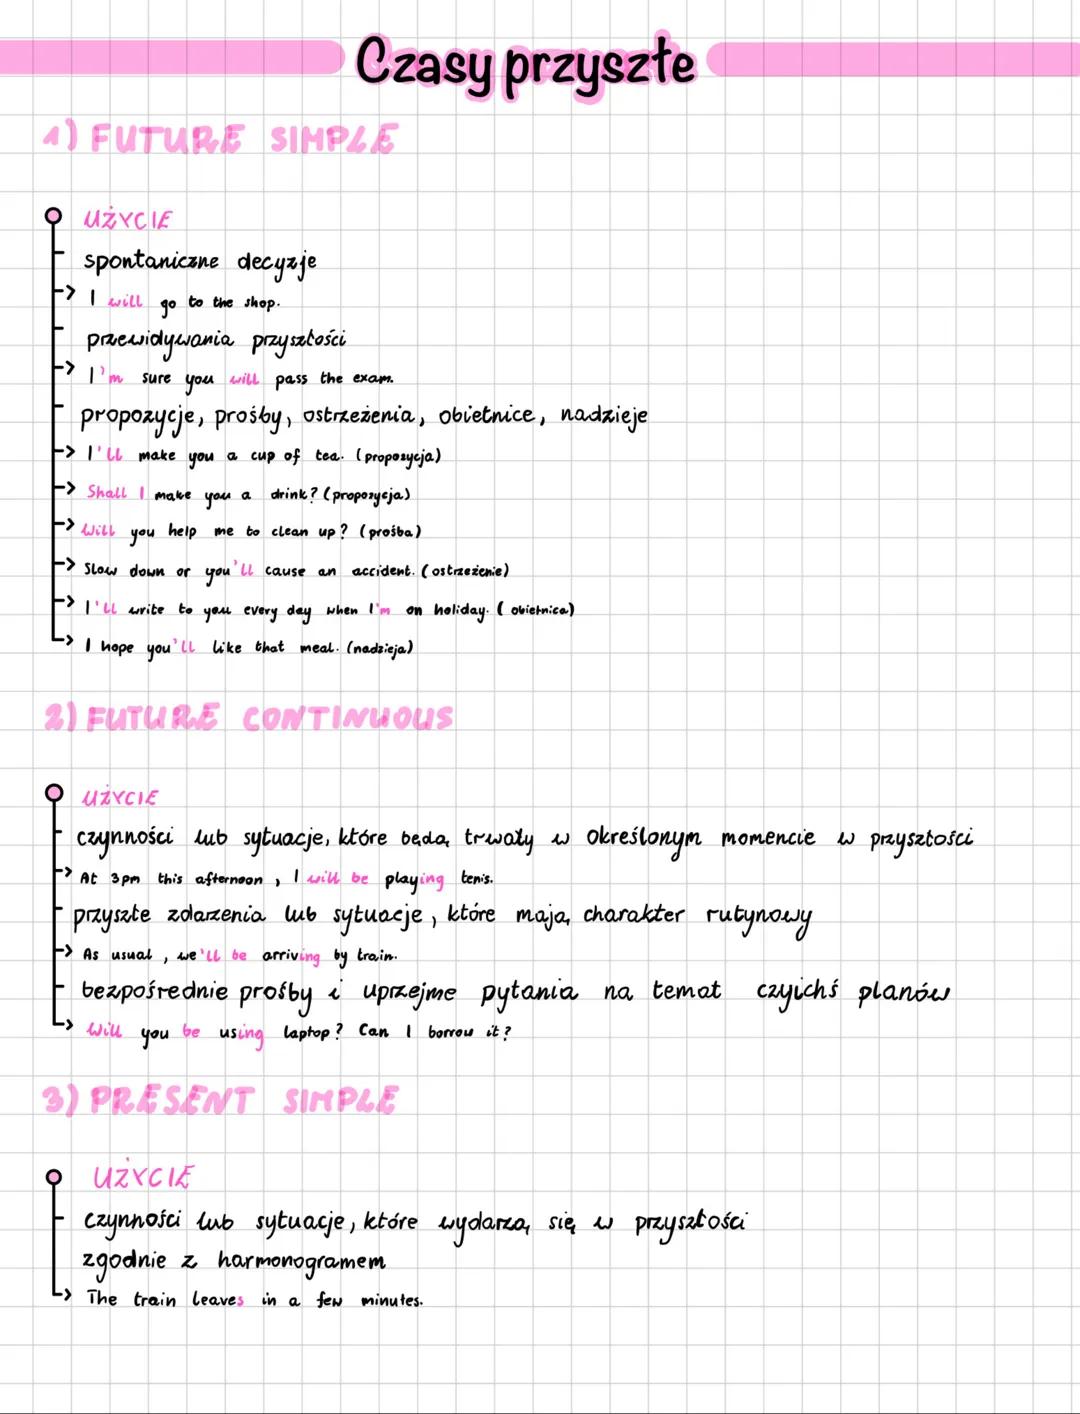 Czasy przyszłe
1) FUTURE SIMPLE
UŻYCIE
spontaniczne decyzje
-> I will go to the shop.
przewidywania przyszłości
-> I'm sure you will pass the exam.
propozycje, prośby, ostrzeżenia, obietnice, nadzieje
-> I'll make you a cup of tea. (propozycja)
-> Shall I make you a drink? (propozycja)
-> Will you help me to clean up? (prośba)
-> Slow down or you'll cause an accident. (ostrzeżenie)
-> I'll write to you every day when I'm on holiday. (obietnica)
-> I hope you'll like that meal. (nadzieja)
2) FUTURE CONTINUOUS
UŻYCIE
czynności lub sytuacje, które będą trwały w określonym momencie w przyszłości
-> At 3pm this afternoon, I will be playing tenis.
przyszłe zdarzenia lub sytuacje, które mają charakter rutynowy
-> As usual, we'll be arriving by train.
bezpośrednie prośby i uprzejme pytania na temat czyichś planów
-> Will you be using laptop? Can I borrow it?
3) PRESENT SIMPLE
UŻYCIE
czynności lub sytuacje, które wydarzą się w przyszłości
zgodnie z harmonogramem
-> The train leaves in a few minutes.